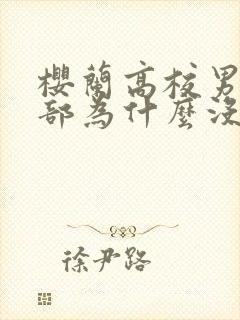 櫻蘭高校男
部為什麼沒
徐尹路